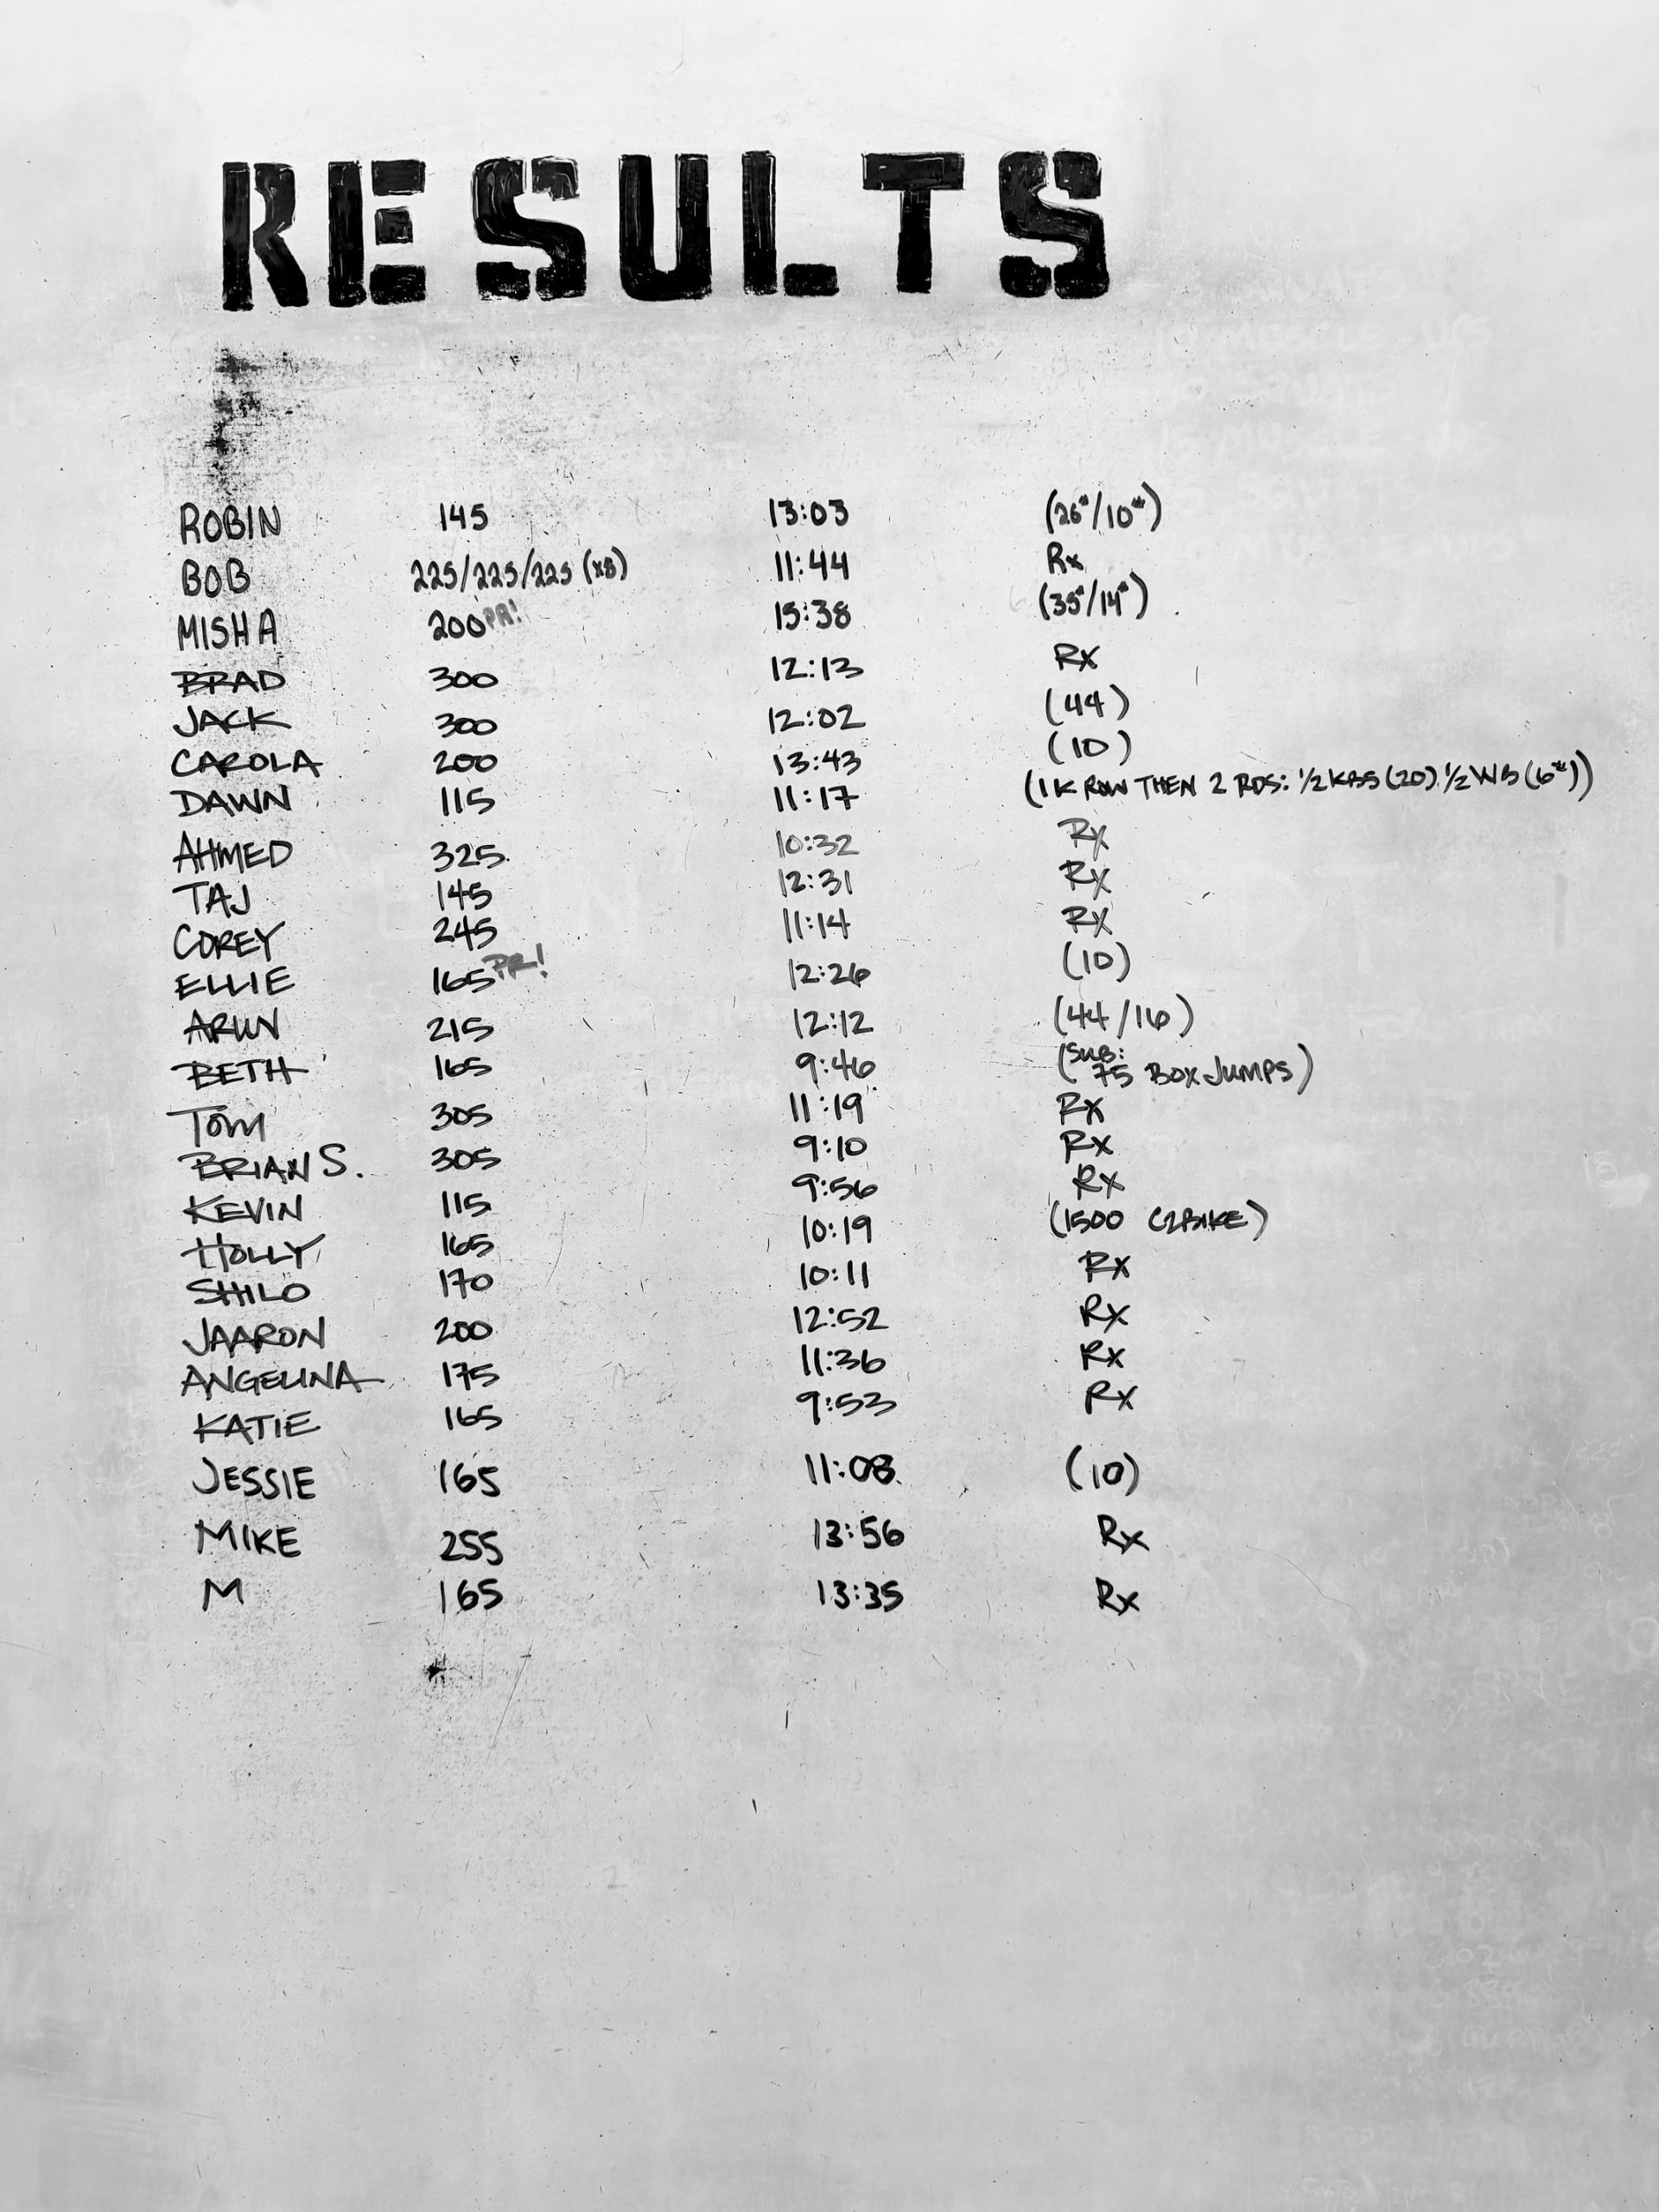 RESULTS
ROBIN 145 13:03 (26#/10#)
BOB 225/225/225 (x8) 11:44 Rx
MISHA 200 PR! 15:38 (35#/14#)
BRAD 300 12:13 RX
JACK 300 12:02 (44)
CAROLA 200 13:43 (10)
DAWN 115 11:17 (1K ROW THEN 2 RDS: 1/2 KBS (20) 1/2 WB (6#))
AHMED 325 10:32 Rx
TAJ 145 12:31 Rx
COREY 245 11:14 RX
ELLIE 165 PR! 12:26 (10)
ARUN 215 12:12 (44/16)
BETH 165 9:46 (SUB: 75 BOX JUMPS)
TOM 305 11:19 RX
BRIAN S. 305 9:10 RX
KEVIN 115 9:56 RX
HOLLY 165 10:19 (1500 C2BIKE)
SHILO 170 10:11 RX
JAARON 200 12:52 RX
ANGELINA 175 11:36 RX
KATIE 165 9:53 RX
JESSIE 165 11:08 (10)
MIKE 255 13:56 Rx
M 165 13:35 Rx